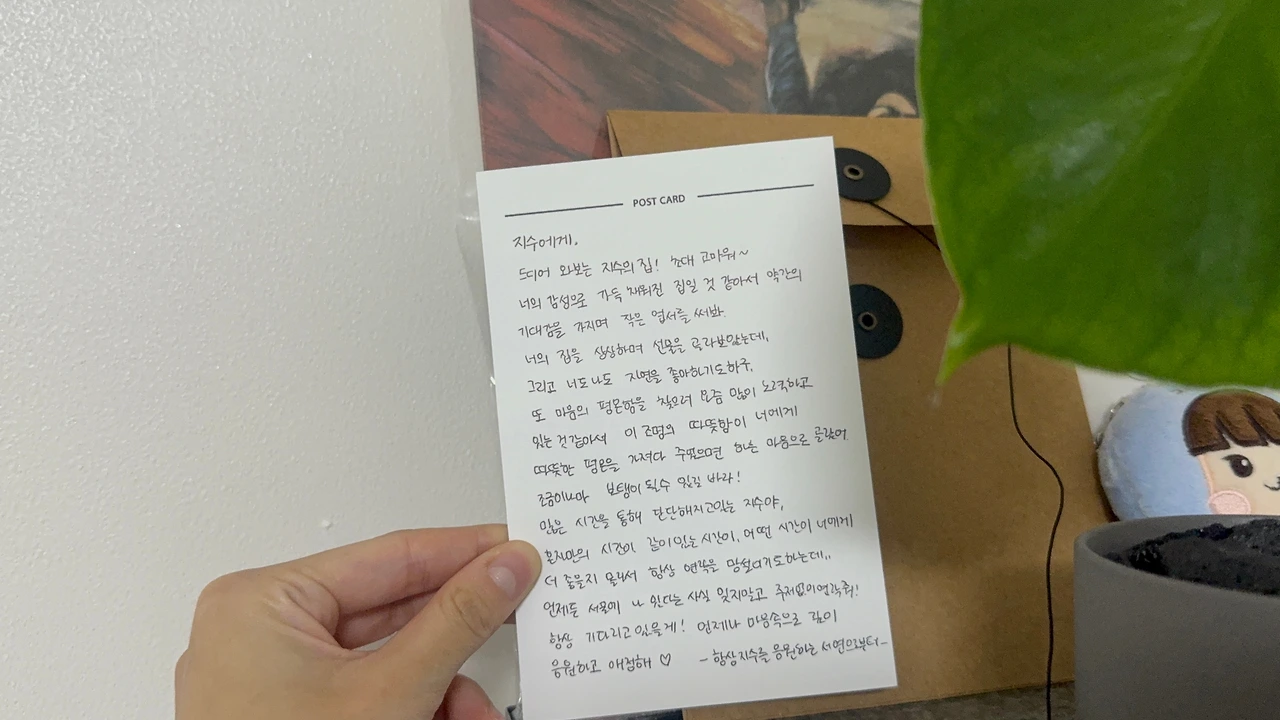 POST CARD
지수에게.
드디어 와보는 지수의 집! 초대 고마워~
너의 감성으로 가득 채워진 집일 것 같아서 약간의
기대감을 가지며 작은 엽서를 써봐.
너의 집을 상상하며 선물을 골라보았는데,
그리고 너도나도 자연을 좋아하기도하구,
또 마음의 평온함을 찾으려 요즘 많이 노력하고
있는 것 같아서 이 조명의 따뜻함이 너에게
따뜻한 평온을 가져다 주었으면 하는 마음으로 골랐어
조금이나마 보탬이 될 수 있길 바라!
많은 시간을 통해 단단해지고있는 지수야,
혼자만의 시간이, 같이있는 시간이, 어떤 시간이 너에게
더 좋을지 몰라서 항상 연락을 망설이기도하는데..
언제든 서울에 나 있다는 사실 잊지말고 주저없이 연락줘!
항상 기다리고 있을게! 언제나 마음속으로 깊이
응원하고 애정해 ♡ - 항상 지수를 응원하는 서연으로부터 -